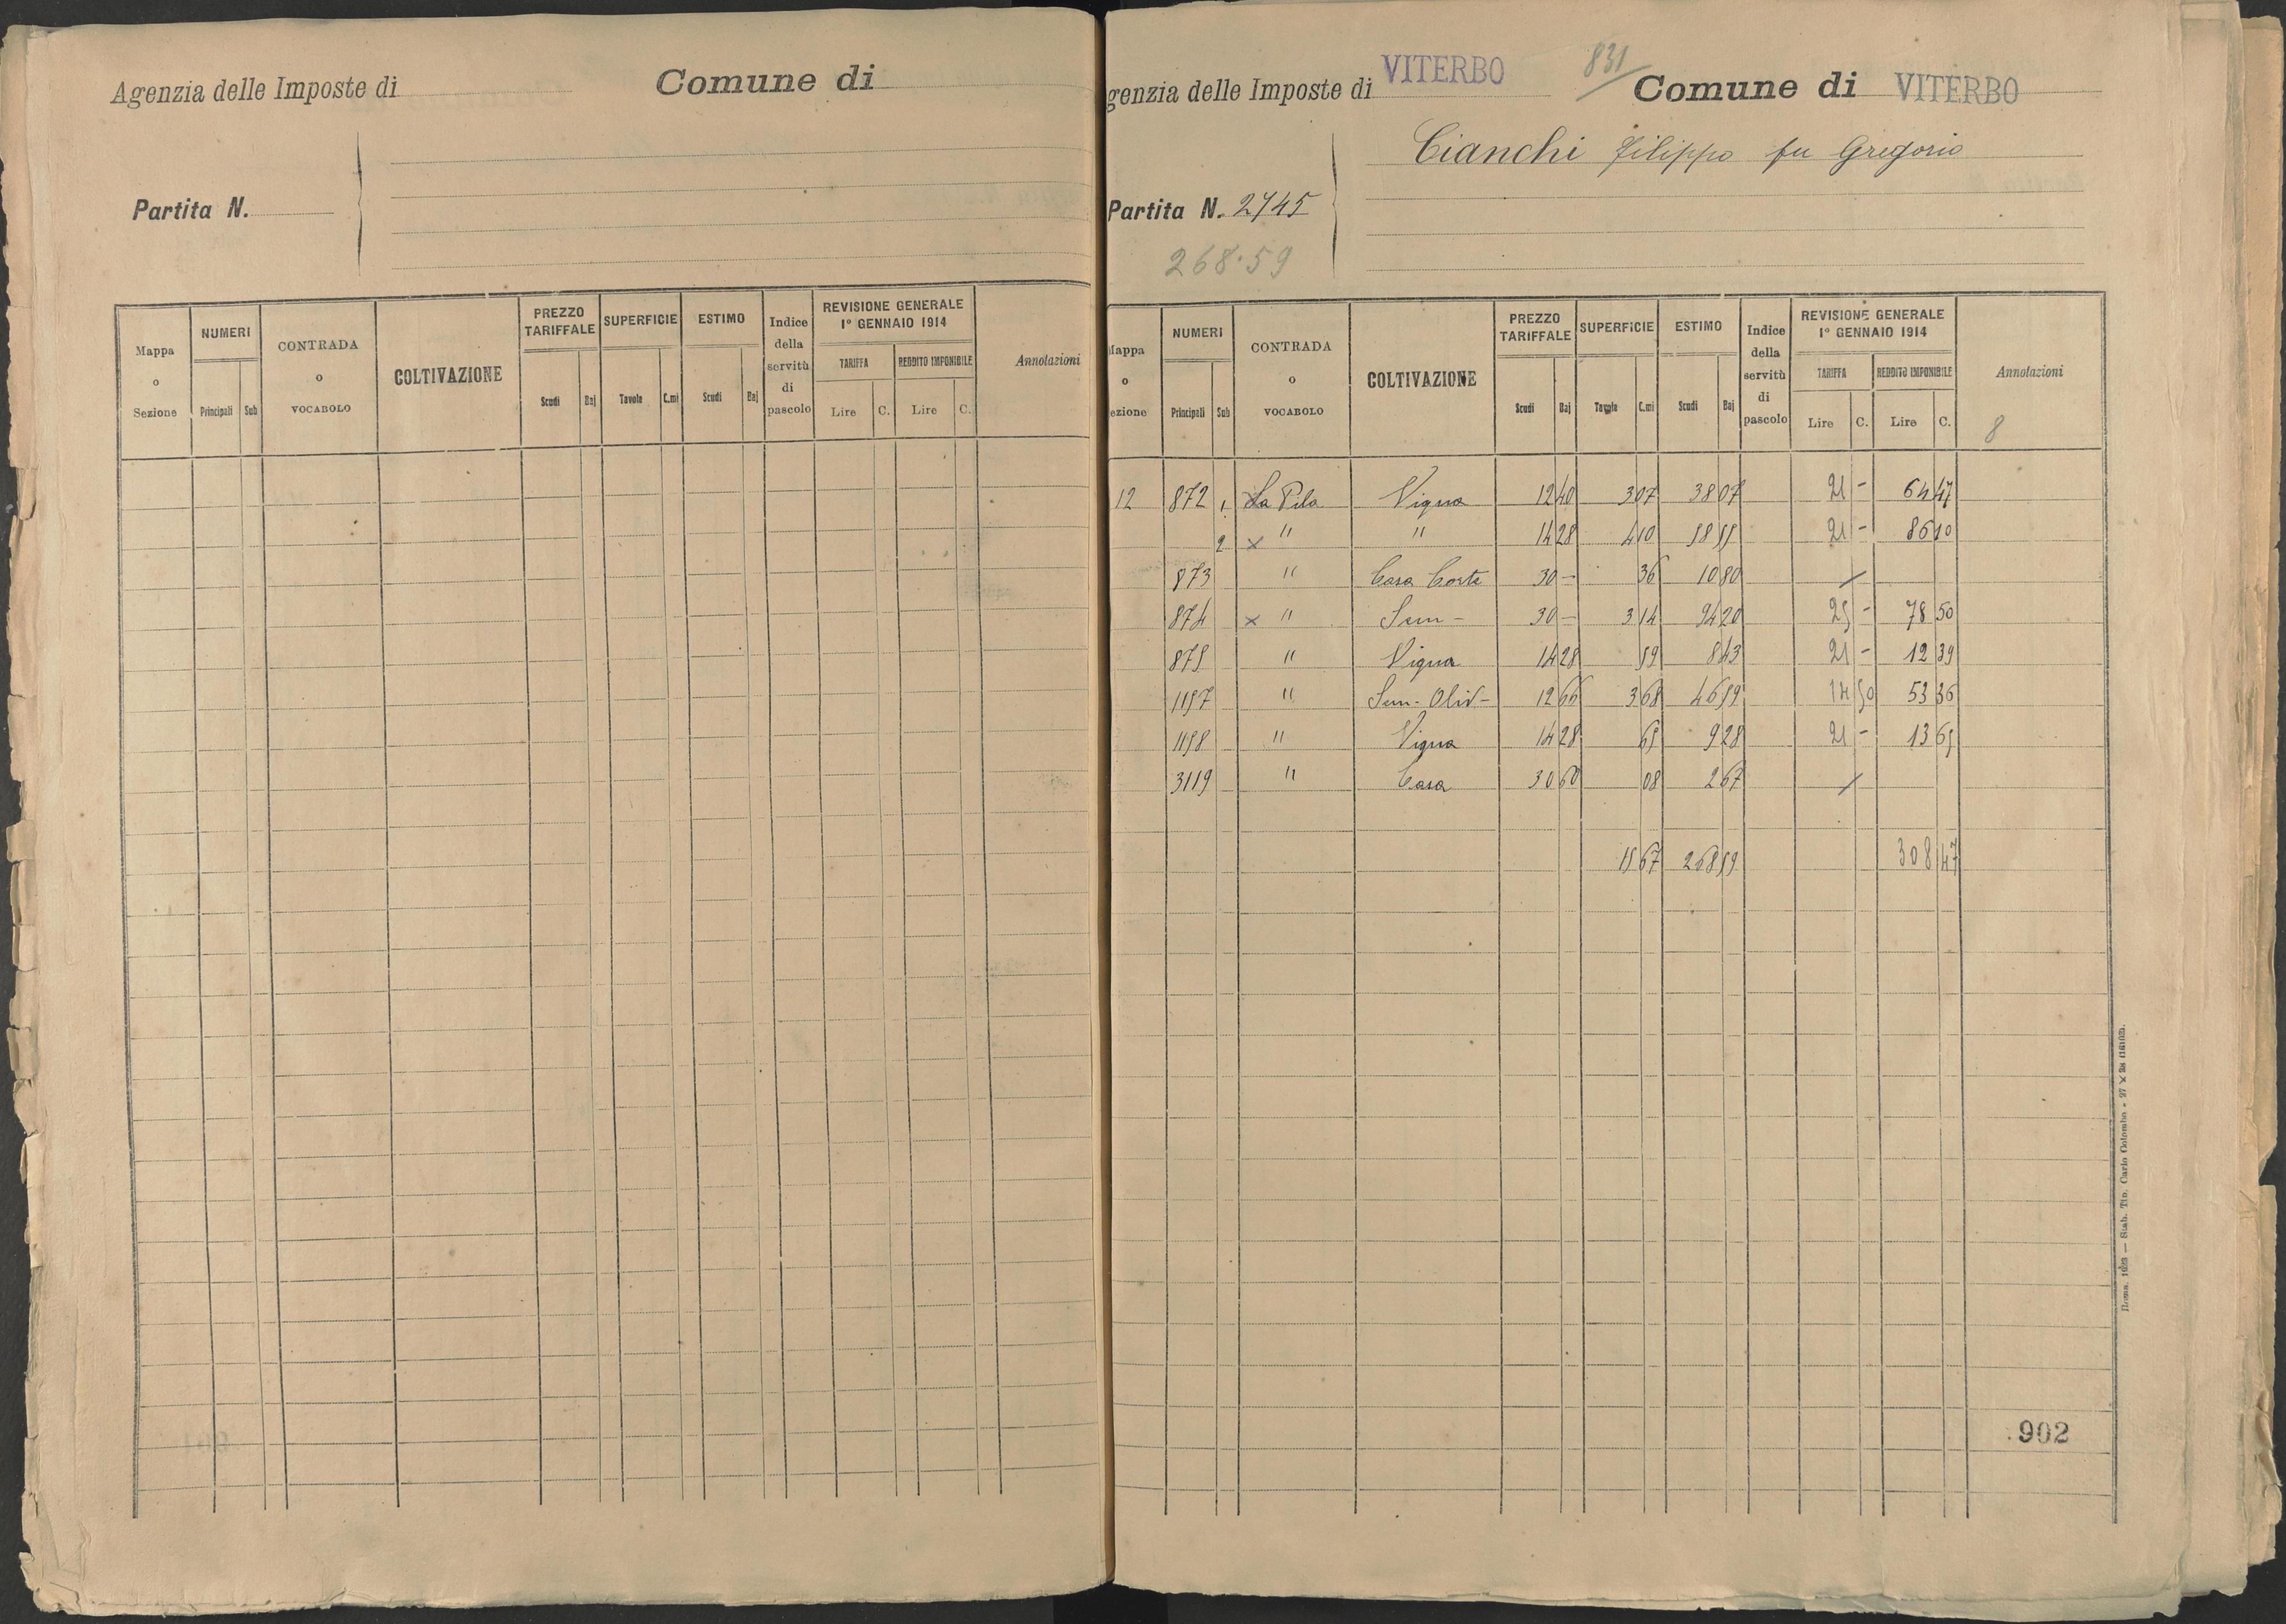 Agenzia delle Imposte di
Comune di
Partita N.
Mappa o Sezione
NUMERI
Principali
Sub
CONTRADA o VOCABOLO
COLTIVAZIONE
PREZZO TARIFFALE
Scudi
Baj
SUPERFICIE
Tavole
C.mi
ESTIMO
Scudi
Baj
Indice della servitù di pascolo
REVISIONE GENERALE
1º GENNAIO 1914
TARIFFA
REDDITO IMPONIBILE
Lire
C.
Lire
C.
Annotazioni
genzia delle Imposte di VITERBO
831
Comune di VITERBO
Cianchi Filippo fu Gregorio
Partita N. 2745
268.59
Mappa o ezione
NUMERI
Principali
Sub
CONTRADA o VOCABOLO
COLTIVAZIONE
PREZZO TARIFFALE
Scudi
Baj
SUPERFICIE
Tavole
C.mi
ESTIMO
Scudi
Baj
Indice della servitù di pascolo
REVISIONE GENERALE
1º GENNAIO 1914
TARIFFA
REDDITO IMPONIBILE
Lire
C.
Lire
C.
Annotazioni
8
12 872 1 La Pila Vigna 12 40 3 07 38 07 21 - 64 47
2 x " " 14 28 4 10 58 55 21 - 86 10
873 " Casa Corte 30 - 36 10 80 /
874 x " Sem - 30 - 3 14 94 20 25 - 78 50
875 " Vigna 14 28 59 8 43 21 - 12 39
1157 " Sem - Oliv - 12 66 3 68 46 59 14 50 53 36
1158 " Vigna 14 28 65 9 28 21 - 13 65
3119 " Casa 30 60 08 2 67 /
15 67 268 59 308 47
902
Roma, 1923 — Stab. Tip. Carlo Colombo